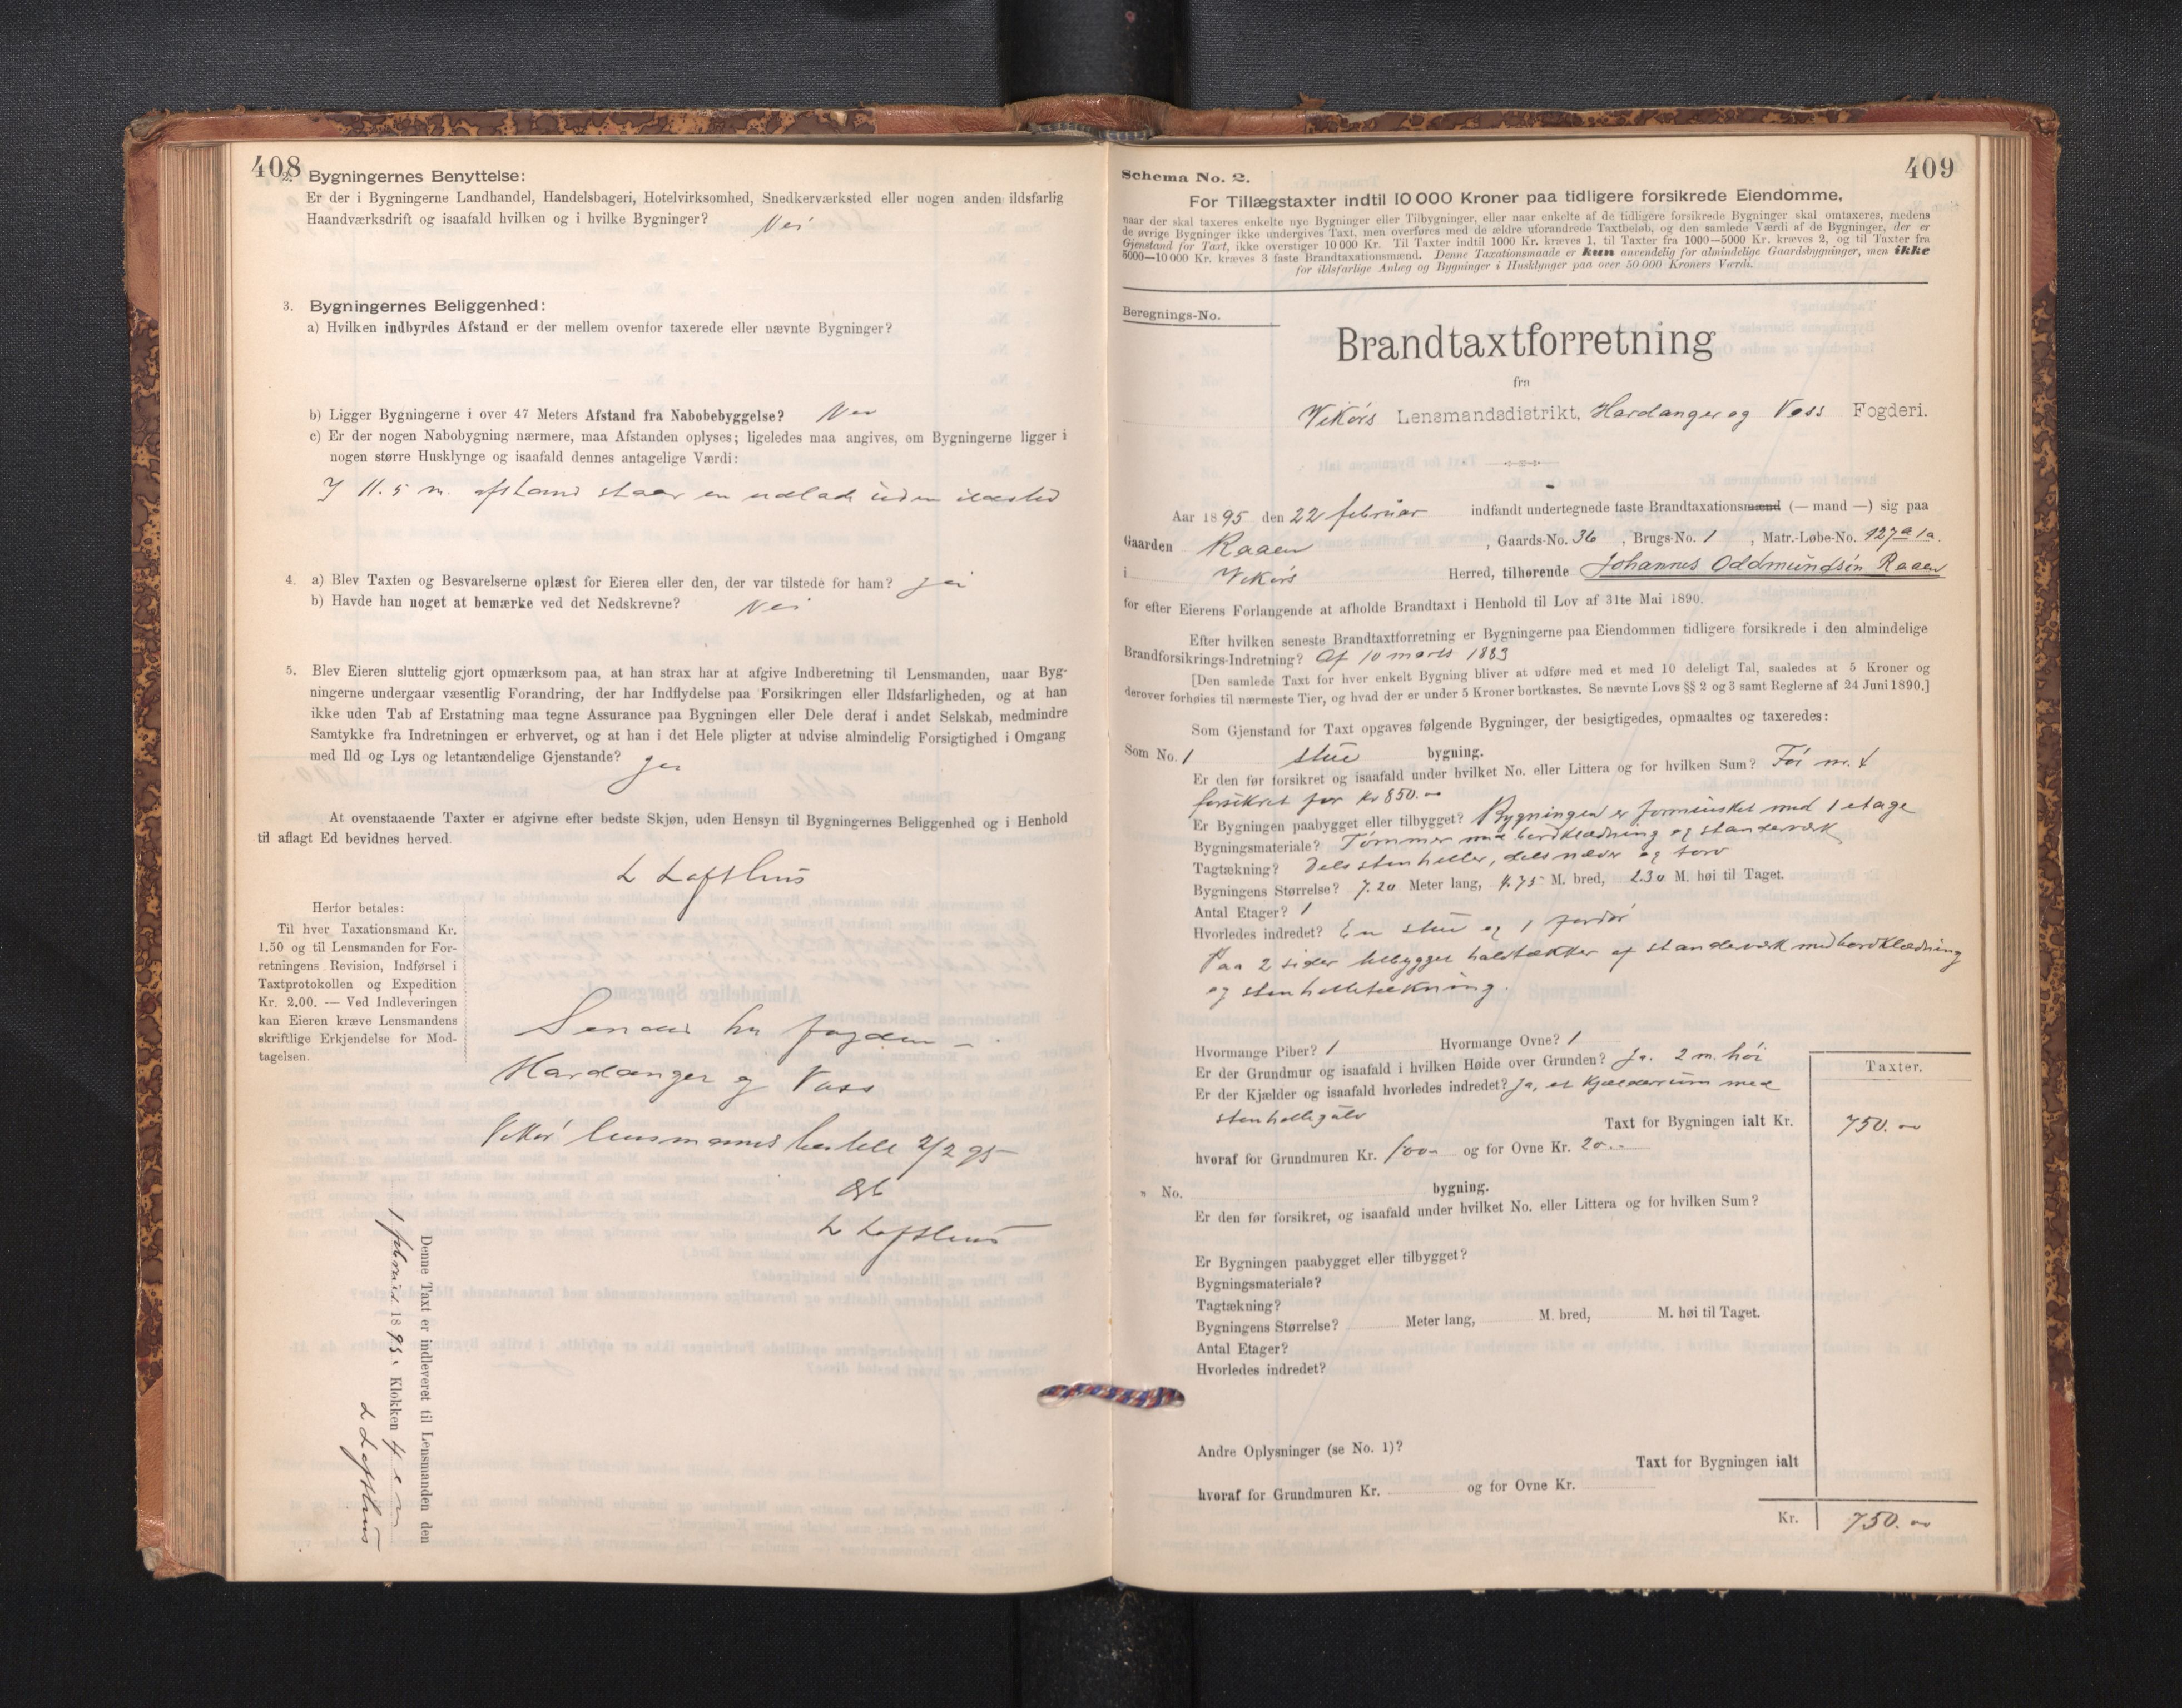 408
2. Bygningernes Benyttelse:
Er der i Bygningerne Landhandel, Handelsbageri, Hotelvirksomhed, Snedkerværksted eller nogen anden ildsfarlig
Haandværksdrift og isaafald hvilken og i hvilke Bygninger? Nei
3. Bygningernes Beliggenhed:
a) Hvilken indbyrdes Afstand er der mellem ovenfor taxerede eller nævnte Bygninger?
b) Ligger Bygningerne i over 47 Meters Afstand fra Nabobebyggelse? Nei
c) Er der nogen Nabobygning nærmere, maa Afstanden oplyses; ligeledes maa angives, om Bygningerne ligger i
nogen større Husklynge og isaafald dennes antagelige Værdi:
I 11.5 m. afstand staar en udlade uden ildsted
4. a) Blev Taxten og Besvarelserne oplæst for Eieren eller den, der var tilstede for ham? Ja
b) Havde han noget at bemærke ved det Nedskrevne? Nei
5. Blev Eieren sluttelig gjort opmærksom paa, at han strax har at afgive Indberetning til Lensmanden, naar Byg-
ningerne undergaar væsentlig Forandring, der har Indflydelse paa Forsikringen eller Ildsfarligheden, og at han
ikke uden Tab af Erstatning maa tegne Assurance paa Bygningen eller Dele deraf i andet Selskab, medmindre
Samtykke fra Indretningen er erhvervet, og at han i det Hele pligter at udvise almindelig Forsigtighed i Omgang
med Ild og Lys og letantændelige Gjenstande? Ja
At ovenstaaende Taxter er afgivne efter bedste Skjøn, uden Hensyn til Bygningernes Beliggenhed og i Henhold
til aflagt Ed bevidnes herved.
L Lofthus
Herfor betales:
Til hver Taxationsmand Kr.
1.50 og til Lensmanden for For-
retningens Revision, Indførsel i
Taxtprotokollen og Expedition
Kr. 2.00. — Ved Indleveringen
kan Eieren kræve Lensmandens
skriftlige Erkjendelse for Mod-
tagelsen.
Sendes hr fogden
Hardanger og Voss
Vikør lensmandsbestill 2/2 95
L Lofthus
Denne Taxt er indleveret til Lensmanden den
1 februar 1895, Klokken 4 em
L Lofthus
409
Schema No. 2.
For Tillægstaxter indtil 10 000 Kroner paa tidligere forsikrede Eiendomme,
naar der skal taxeres enkelte nye Bygninger eller Tilbygninger, eller naar enkelte af de tidligere forsikrede Bygninger skal omtaxeres, medens
de øvrige Bygninger ikke undergives Taxt, men overføres med de ældre uforandrede Taxtbeløb, og den samlede Værdi af de Bygninger, der er
Gjenstand for Taxt, ikke overstiger 10 000 Kr. Til Taxter indtil 1000 Kr. kræves 1, til Taxter fra 1000—5000 Kr. kræves 2, og til Taxter fra
5000—10 000 Kr. kræves 3 faste Brandtaxationsmænd. Denne Taxationsmaade er kun anvendelig for almindelige Gaardsbygninger, men ikke
for ildsfarlige Anlæg og Bygninger i Husklynger paa over 50 000 Kroners Værdi.
Beregnings-No.
Brandtaxtforretning
fra
Vikørs Lensmandsdistrikt, Hardanger og Voss Fogderi.
Aar 1895 den 22 februar indfandt undertegnede faste Brandtaxationsmænd (— mand —) sig paa
Gaarden Raaen, Gaards-No. 36, Brugs-No. 1, Matr.-Løbe-No. 127a 1a.
i Vikørs Herred, tilhørende Johannes Oddmundsen Raaen
for efter Eierens Forlangende at afholde Brandtaxt i Henhold til Lov af 31te Mai 1890.
Efter hvilken seneste Brandtaxtforretning er Bygningerne paa Eiendommen tidligere forsikrede i den almindelige
Brandforsikrings-Indretning? Af 10 marts 1883
[Den samlede Taxt for hver enkelt Bygning bliver at udføre med et med 10 deleligt Tal, saaledes at 5 Kroner og
derover forhøies til nærmeste Tier, og hvad der er under 5 Kroner bortkastes. Se nævnte Lovs §§ 2 og 3 samt Reglerne af 24 Juni 1890.]
Som Gjenstand for Taxt opgaves følgende Bygninger, der besigtigedes, opmaaltes og taxeredes:
Som No. 1 stue bygning.
Er den før forsikret og isaafald under hvilket No. eller Littera og for hvilken Sum? Før nr.
forsikret for Kr 850.00
Er Bygningen paabygget eller tilbygget? Bygningen er forminsket med 1 etage
Bygningsmateriale? Tømmer med bordklædning og standerværk
Tagtækning? Dels stenheller, dels næver og torv
Bygningens Størrelse? 7.20 Meter lang, 4.75 M. bred, 2.30 M. høi til Taget.
Antal Etager? 1
Hvorledes indredet? En stue og 1 fordør
Paa 2 sider tilbygget halvtækter af standerværk med bordklædning
og stenhelletækning.
Hvormange Piber? 1 Hvormange Ovne? 1
Er der Grundmur og isaafald i hvilken Høide over Grunden? Ja. 2 m. høi
Er der Kjælder og isaafald hvorledes indredet? Ja, et Kjælderrum med
stenhellegulv Taxt for Bygningen ialt Kr.
Taxter.
750.00
hvoraf for Grundmuren Kr. 100 og for Ovne Kr. 20.
" No. bygning.
Er den før forsikret, og isaafald under hvilket No. eller Littera og for hvilken Sum?
Er Bygningen paabygget eller tilbygget?
Bygningsmateriale?
Tagtækning?
Bygningens Størrelse? Meter lang, M. bred, M. høi til Taget.
Antal Etager?
Hvorledes indredet?
Andre Oplysninger (se No. 1)?
Taxt for Bygningen ialt
hvoraf for Grundmuren Kr. og for Ovne Kr.
Kr. 750.00